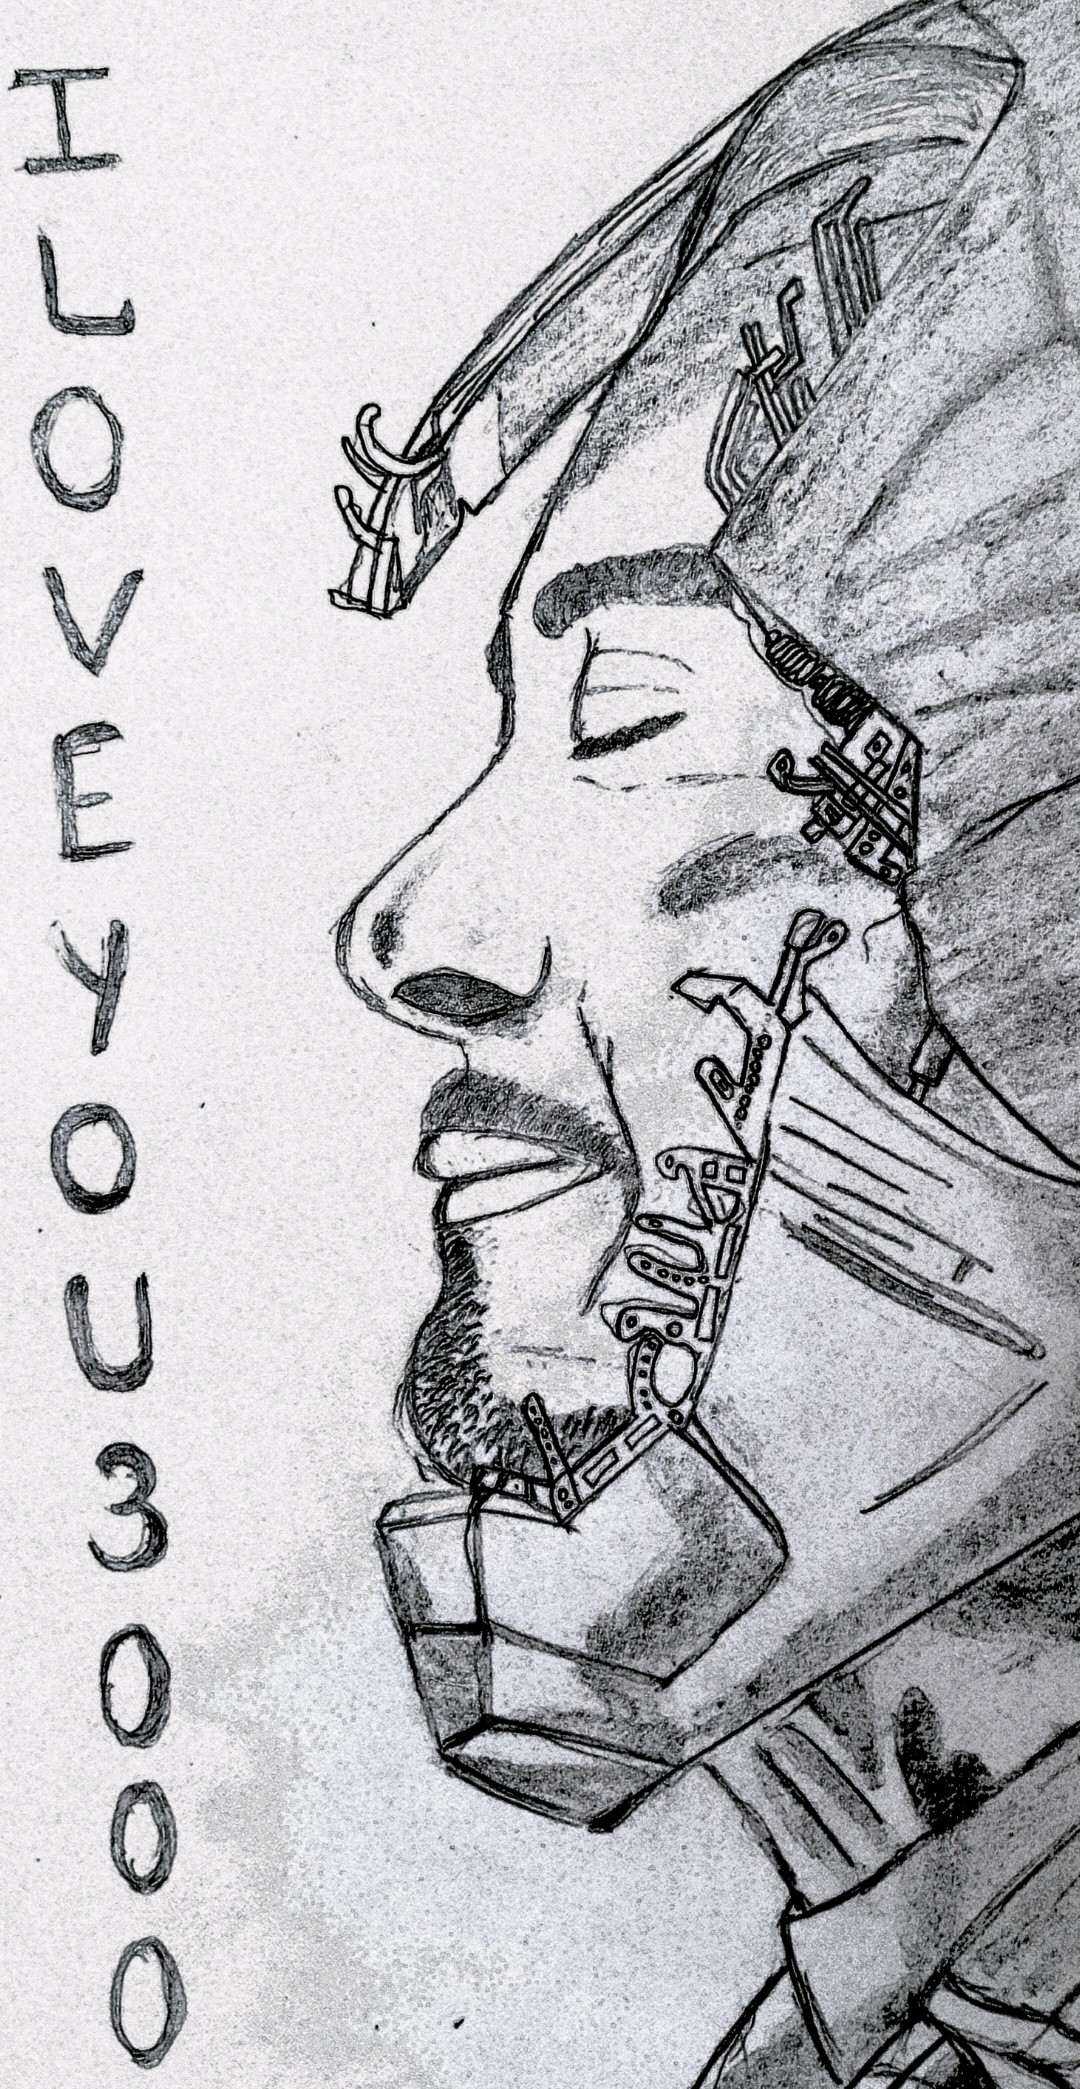 I LOVE YOU 3000